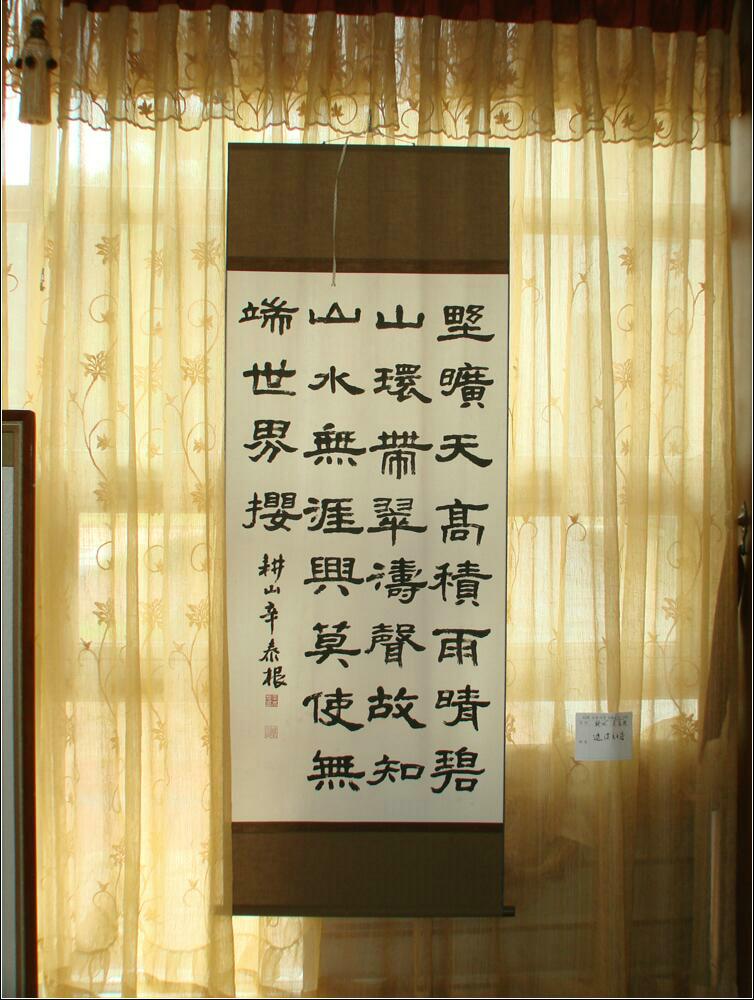 壄曠天高積雨晴碧
山環帶翠濤聲故知
山水無涯興莫使無
端世界攖
耕山辛泰根